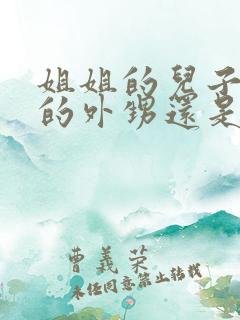 姐姐的兒子
的外甥還是
曹義榮
未任同意禁止转载